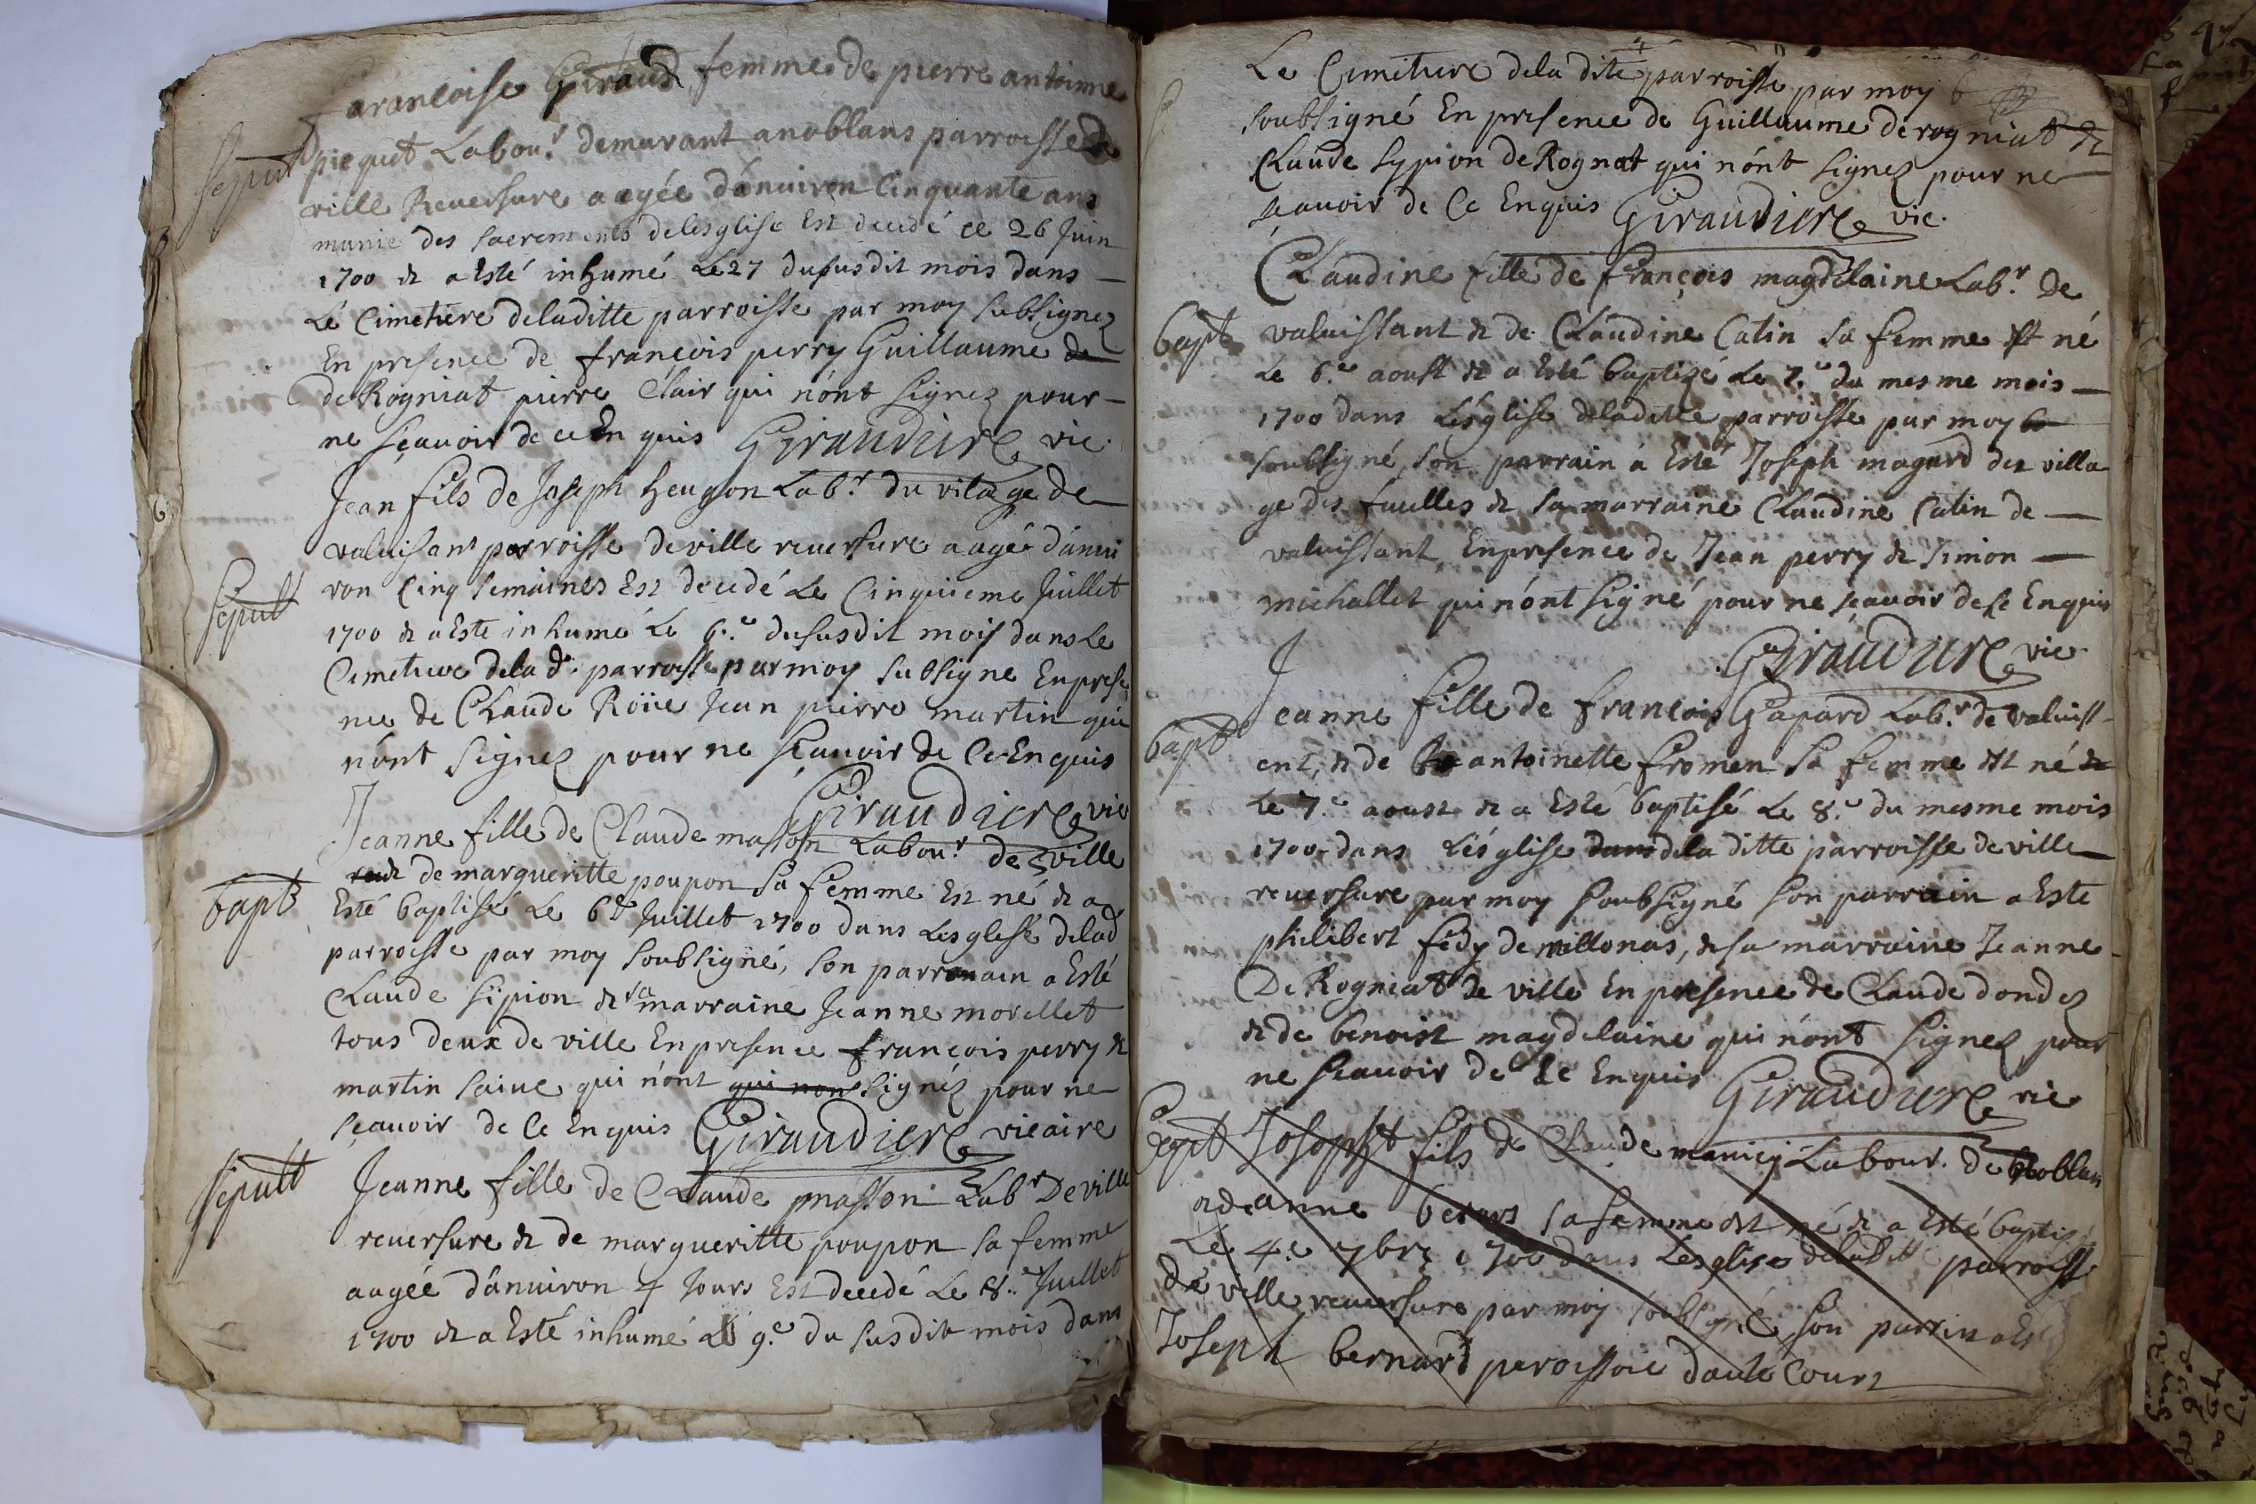 francoise Giraud femme de pierre antoinne
Sepult piequet Labour. demurant anoblans parroisse de
ville Reuersure aagée d'enuiron Cinquante ans
munie des sacrements de lesglise Est decedé ce 26 Juin
1700 & a Esté inhumé Le 27 du susdit mois dans
Le Cimetiere deladitte parroisse par moy subsignez
En presence de francois perry Guillaume de
de Rogniat pierre Clair qui n'ont signez pour
ne sçauoir de ce En quis Giraudiere vic.
Jean fils de Joseph heugon Lab.r du vilage de
valuisant parroisse de ville reuersure aagé d'enui
Sepult
ron Cinq semaines Est decedé Le Cinquieme Juillet
1700 & a Este inhumé Le 6.e du susdit mois dans Le
Cimetiere dela d. parroisse par moy subsigne En prese
nce de Claude Roüe Jean pierre martin qui
n'ont signez pour ne sçauoir de Ce Enquis
Giraudiere vic
Jeanne fille de Claude masson Labour. de ville
bapt
& de margueritte poupon sa femme Est né & a
Esté baptisé Le 6e Juillet 1700 dans Lesglise delad
parroisse par moy soubsigné, son parrain a Esté
Claude sipion & sa marraine Jeanne morellet
tous deux de ville En presence francois perry &
martin saive qui n'ont qui nont signéz pour ne
sçauoir de Ce Enquis Giraudiere vicaire
Sepult
Jeanne fille de Claude masson Lab.r De ville
reuersure & de margueritte poupon sa femme
aagée d'enuiron 4 Jours Est decedé Le 8.e Juillet
1700 & a Esté inhumé Le 9.e du susdit mois dans
Le Cimetiere dela dite parroisse par moy
soubsigné En presence de Guillaume de rogniat &
Claude sypion de Rognat qui n'ont signez pour ne
sçauoir de Ce Enquis Giraudiere vic.
Claudine fille de françois magdelaine Lab.r de
bapt
valuissant & de Claudine Catin sa femme Est né
Le 6.e aoust & a Esté baptizé Le 7.e du mesme mois
1700 dans Lésglise deladitte parroisse par moy
soubsigné, son parrain à Esté Joseph magard des villa
ge des fuilles & sa marraine Claudine Catin de
valuissant En presence de Jean perry & simon
michallet qui n'ont signé pour ne sçauoir de se Enquis
Giraudiere vic.
Jeanne fille de francois Gapard Lab.r de valuiss
bapt
ent, & de antoinette fromen sa femme Est né &
Le 7.e aoust & a Esté baptisé Le 8.e du mesme mois
1700 dans Lésglise dans dela ditte parroisse de ville
reuersure par moy soubsigné son parrain a Este
philibert fedy de millonas, & sa marraine Jeanne
De Rogniat de ville En presence de Claude dondez
& de benoist magdelaine qui n'ont signez pour
ne sçauoir de Ce Enquis Giraudiere vic
Bapt Joseph fils de Claude maniey Labour. de Noblans
& de anne berars sa femme est né & a Esté baptisé
Le 4.e 7bre 1700 dans Lesglise deladitt parroisse
De ville reuersure par moy soubsigné, son parrin a Es
Joseph bernard paroissoie d'aule Court